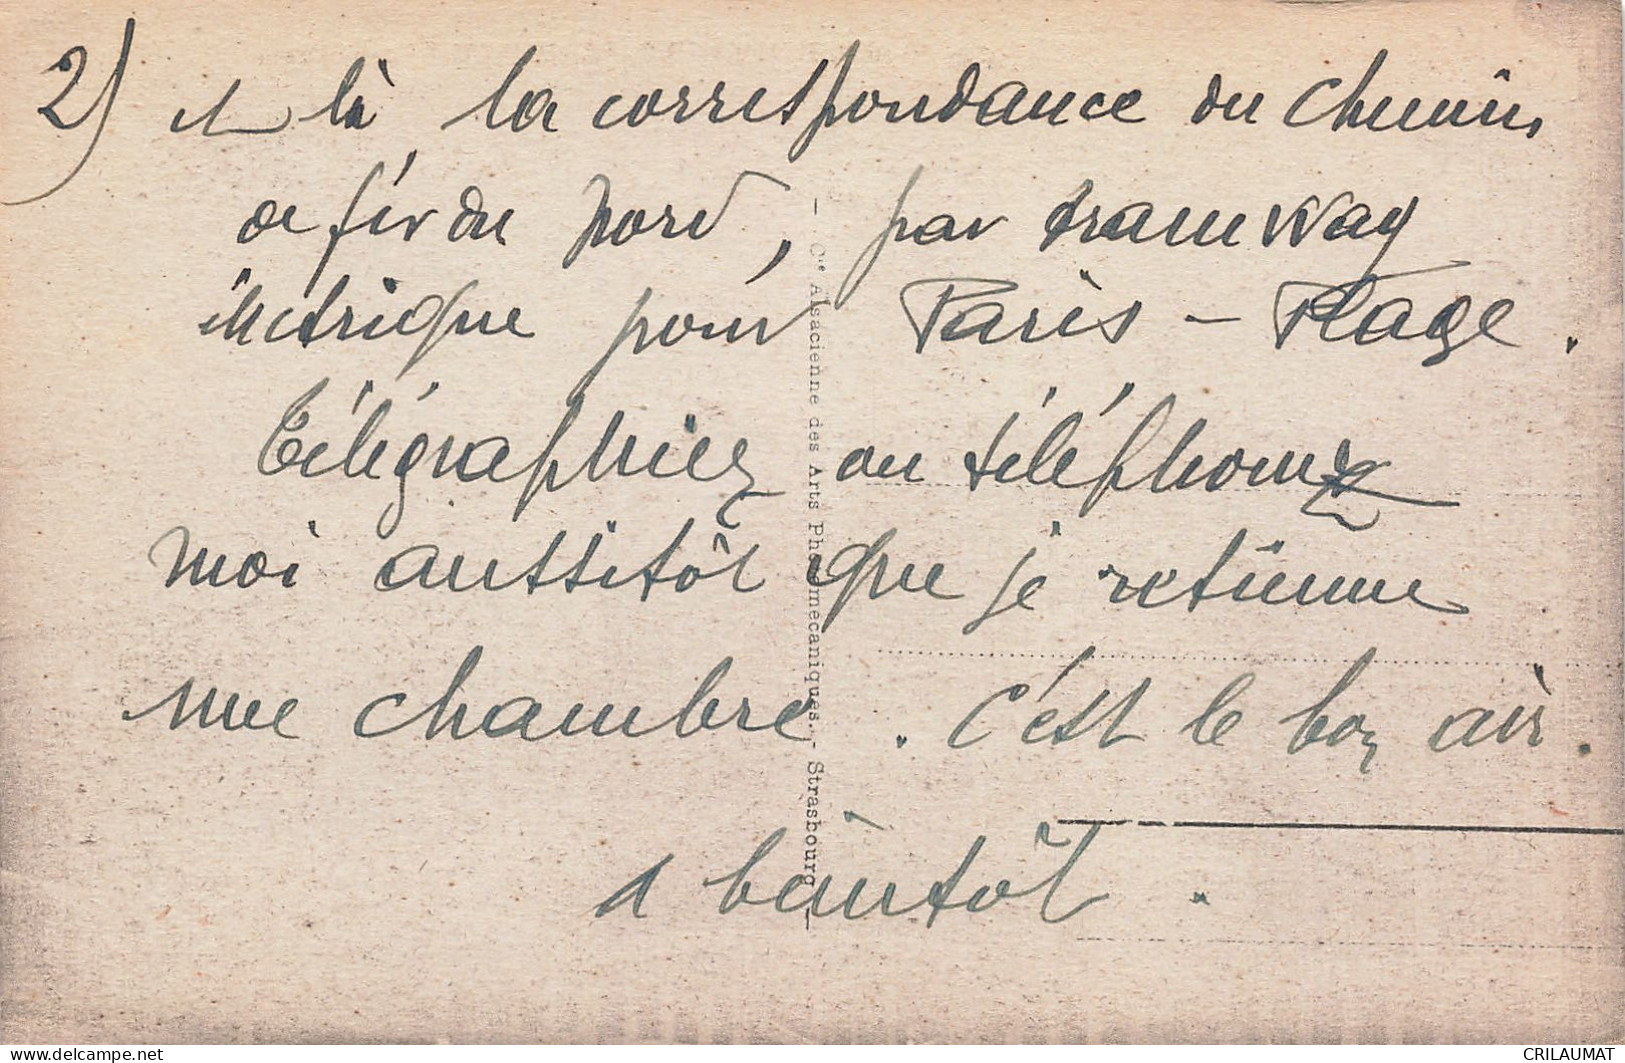 2) et là la correspondance du chemin
de fer du Nord, par tramway
électrique pour Paris - Plage.
Télégraphiez ou téléphonez
moi aussitôt que je retienne
une chambre. C'est le bon air.
A bientôt.
- Cie Alsacienne des Arts Photomécaniques. - Strasbourg -
www.delcampe.net
CRILAUMAT